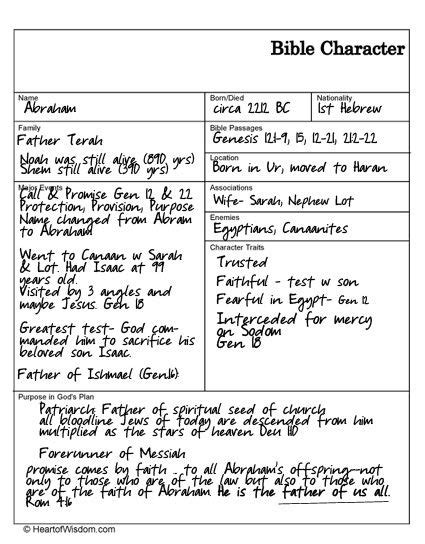 Bible Character
Name
Abraham
Born/Died
circa 2212 BC
Nationality
1st Hebrew
Family
Father Terah
Noah was still alive (890 yrs)
Shem still alive (390 yrs)
Bible Passages
Genesis 12:1-9, 15, 17-21, 21:2-22
Location
Born in Ur, moved to Haran
Major Events
Call & Promise Gen 12 & 22
Protection, Provision, Purpose
Name changed from Abram
to Abraham
Went to Canaan w Sarah
& Lot. Had Isaac at 99
years old.
Visited by 3 angles and
maybe Jesus. Gen 18
Greatest test- God com-
manded him to sacrifice his
beloved son Isaac.
Father of Ishmael (Gen16)
Associations
Wife- Sarah, Nephew Lot
Enemies
Egyptians, Canaanites
Character Traits
Trusted
Faithful - test w son
Fearful in Egypt- Gen 12
Interceded for mercy
on Sodom
Gen 18
Purpose in God's Plan
Patriarch Father of spiritual seed of church
all bloodline Jews of today are descended from him
multiplied as the stars of heaven Deu 1:10
Forerunner of Messiah
promise comes by faith ...to all Abraham's offspring—not
only to those who are of the law but also to those who
are of the faith of Abraham He is the father of us all.
Rom 4:16
© HeartofWisdom.com